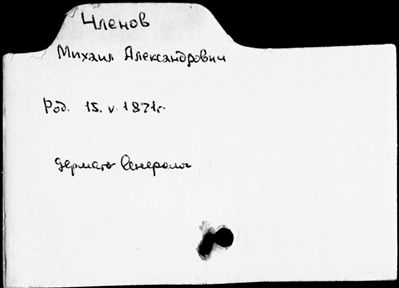 Членов
Михаил Александрович
Род. 15.V.1871г.
дермато Венеролог